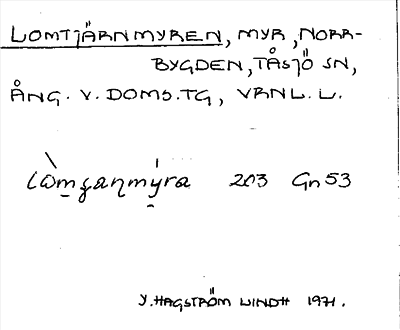 LOMTJÄRNMYREN, MYR, NORR-
BYGDEN, TÅSJÖ SN,
ÅNG. V. DOMS. TG, VRNL. L.
203 Gn 53
Y. HAGSTRÖM WINDH 1971.